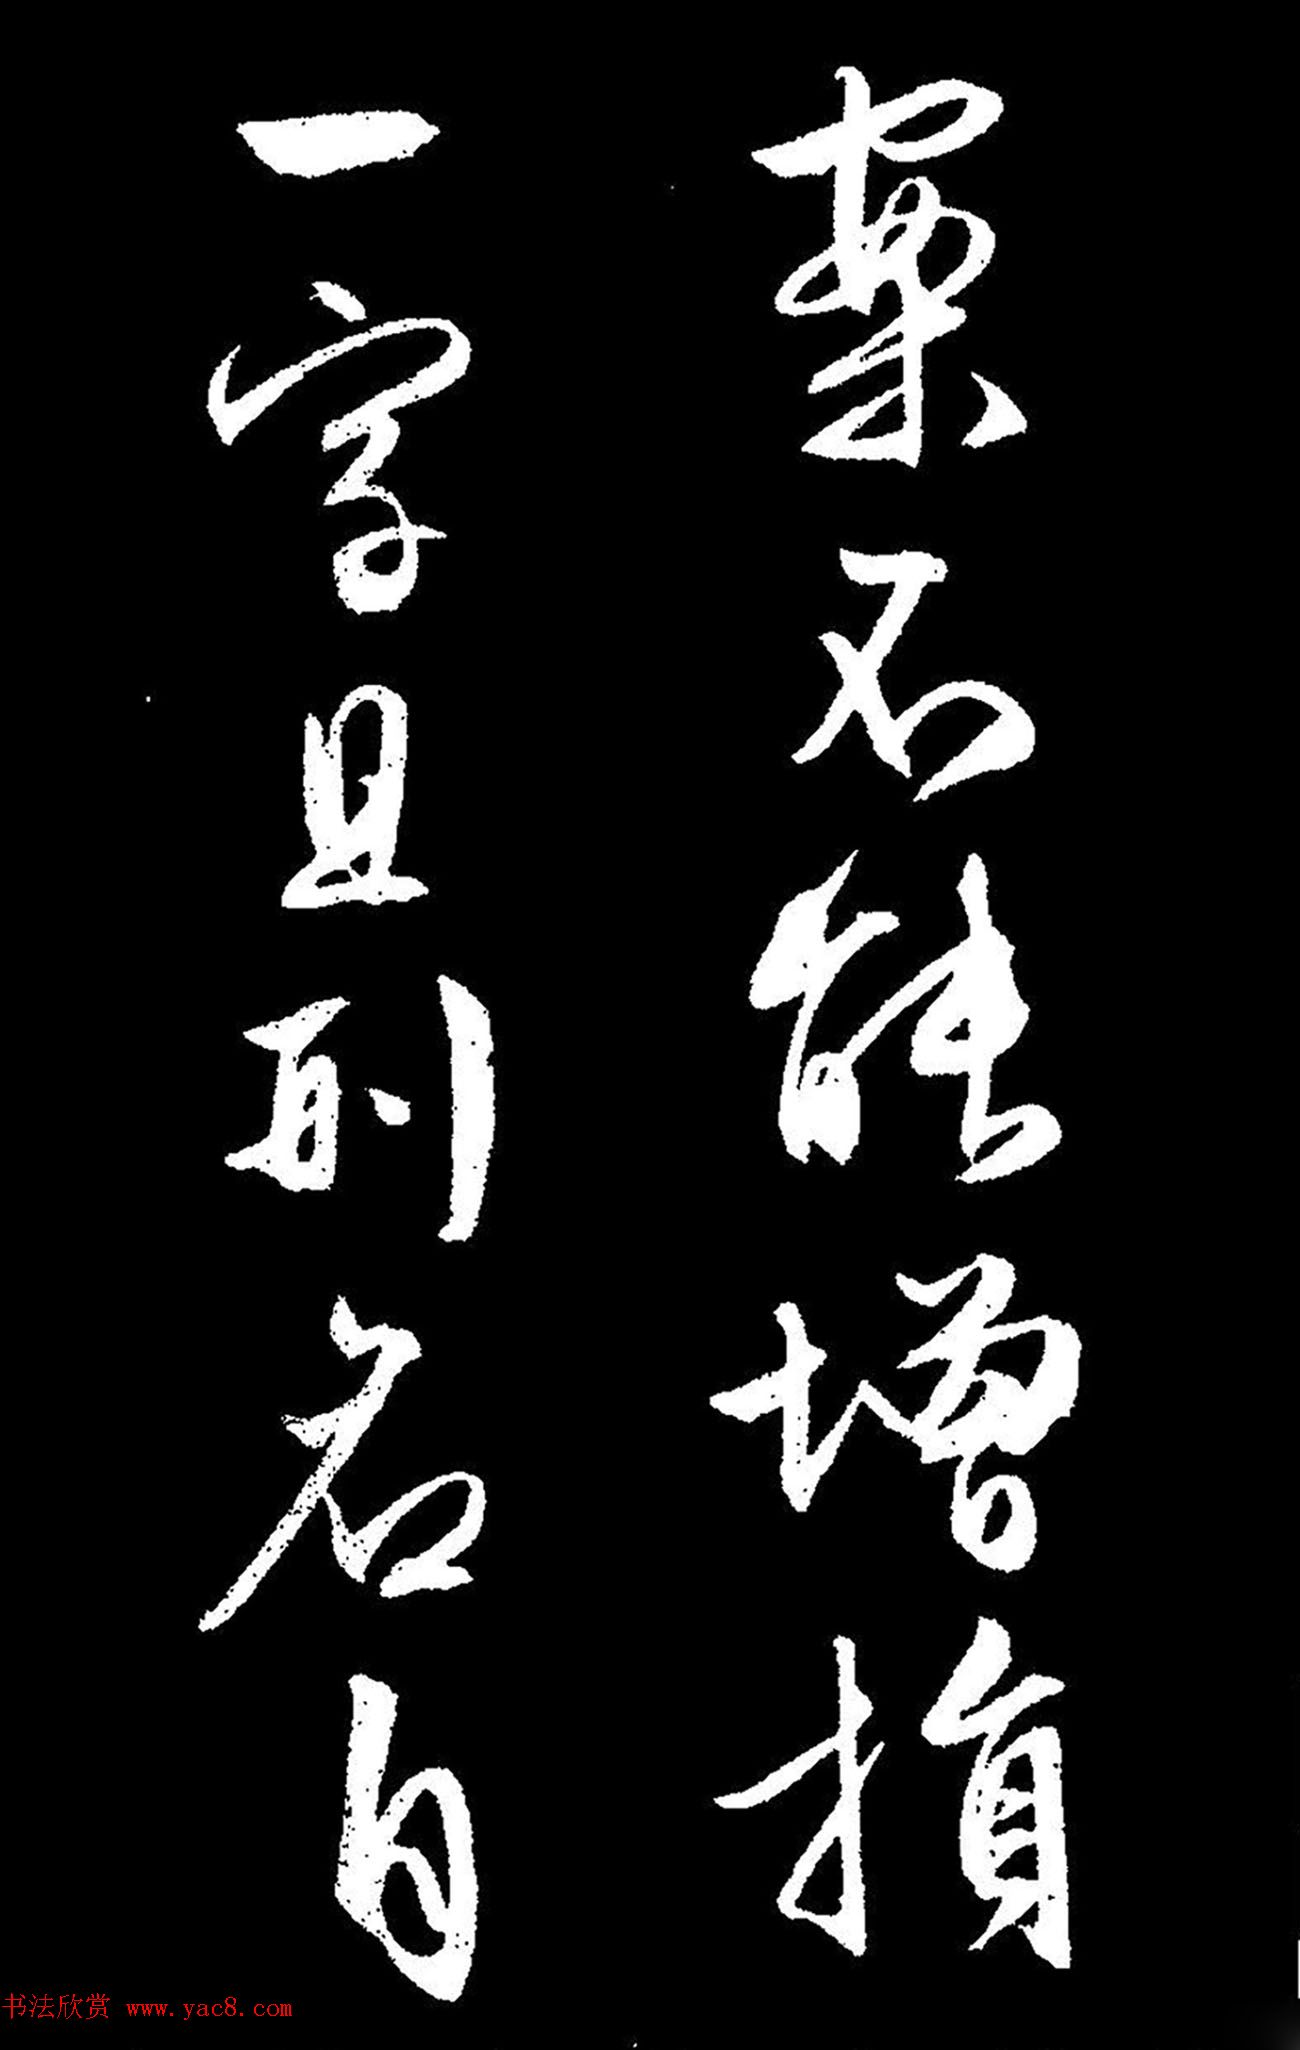 案不能增損
一字且刑名自
书法欣赏 www.yac8.com